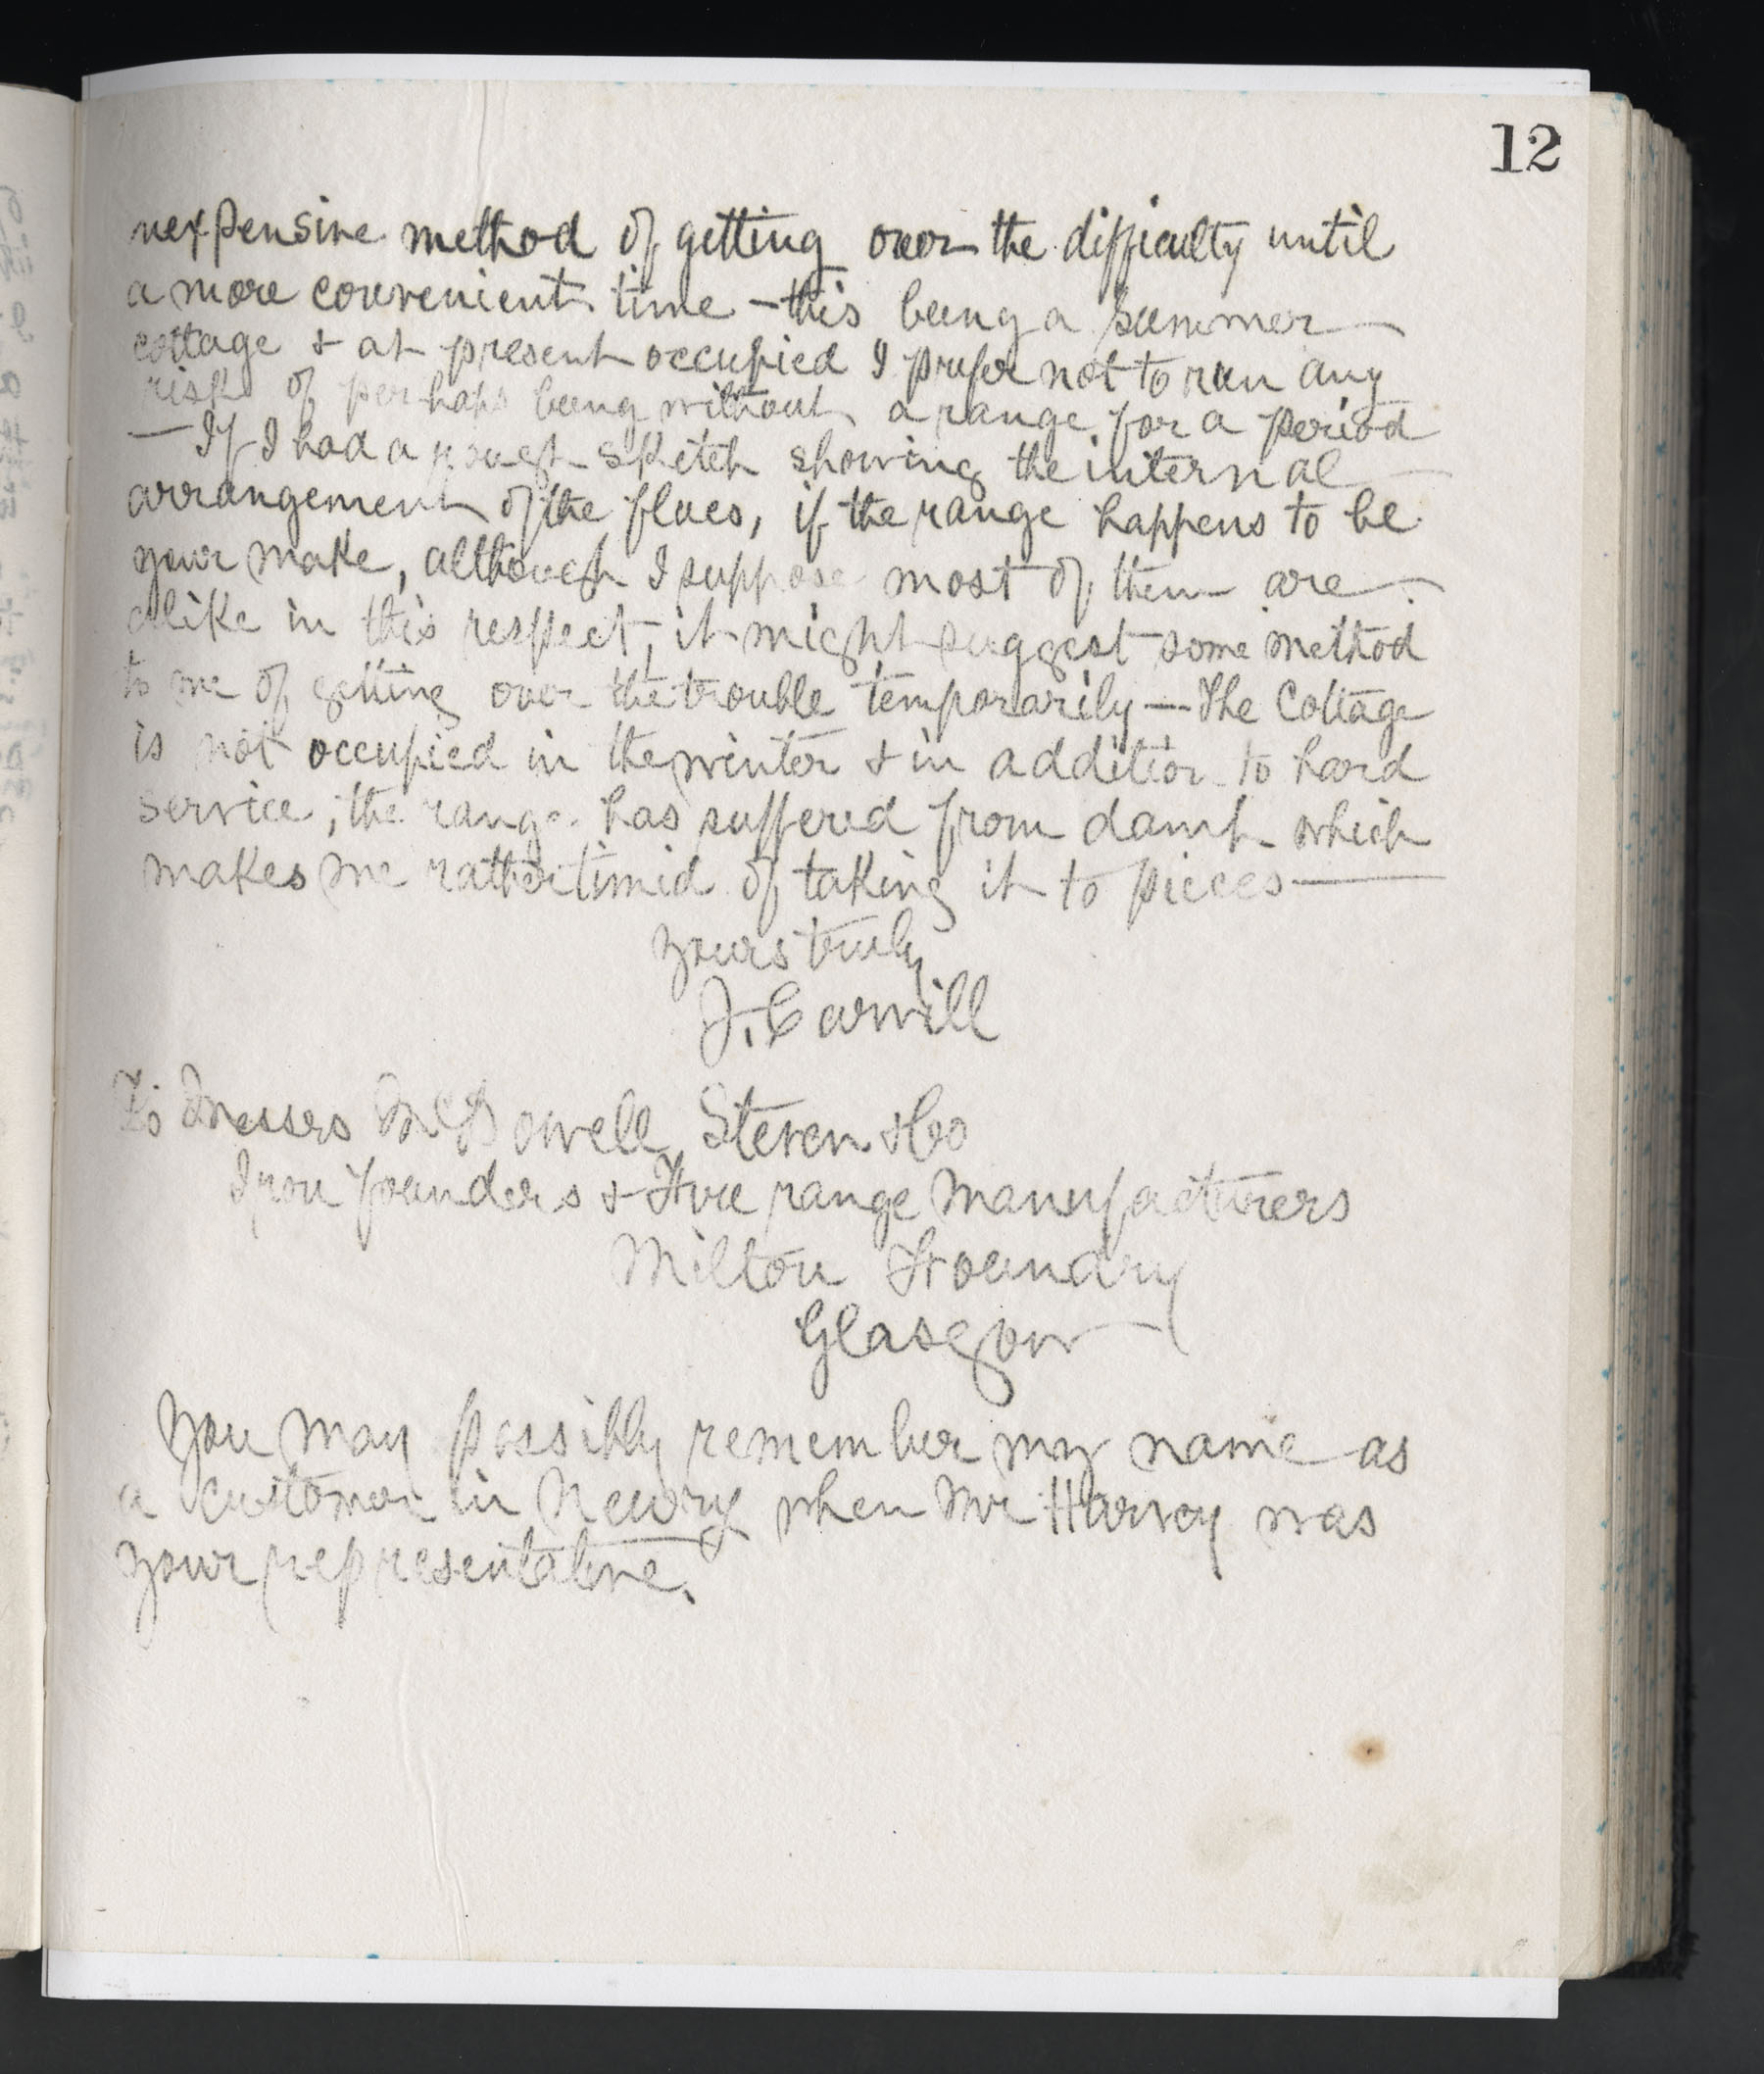 12
nexpensive method of getting over the difficulty until
a more convenient time - this being a summer
cottage & at present occupied I prefer not to run any
risk of perhaps being without a range for a period
— If I had a rough sketch showing the internal
arrangement of the flues, if the range happens to be
your make, although I suppose most of them are
alike in this respect, it might suggest some method
to me of getting over the trouble temporarily — The Cottage
is not occupied in the winter & in addition to hard
service, the range has suffered from damp which
makes me rather timid of taking it to pieces —
Yours truly
J. Carvill
To Messrs McDowell Steven & Co
Iron founders & Fire range Manufacturers
Milton Foundry
Glasgow
You may possibly remember my name as
a customer in Newry when Mr Harvey was
your representative.